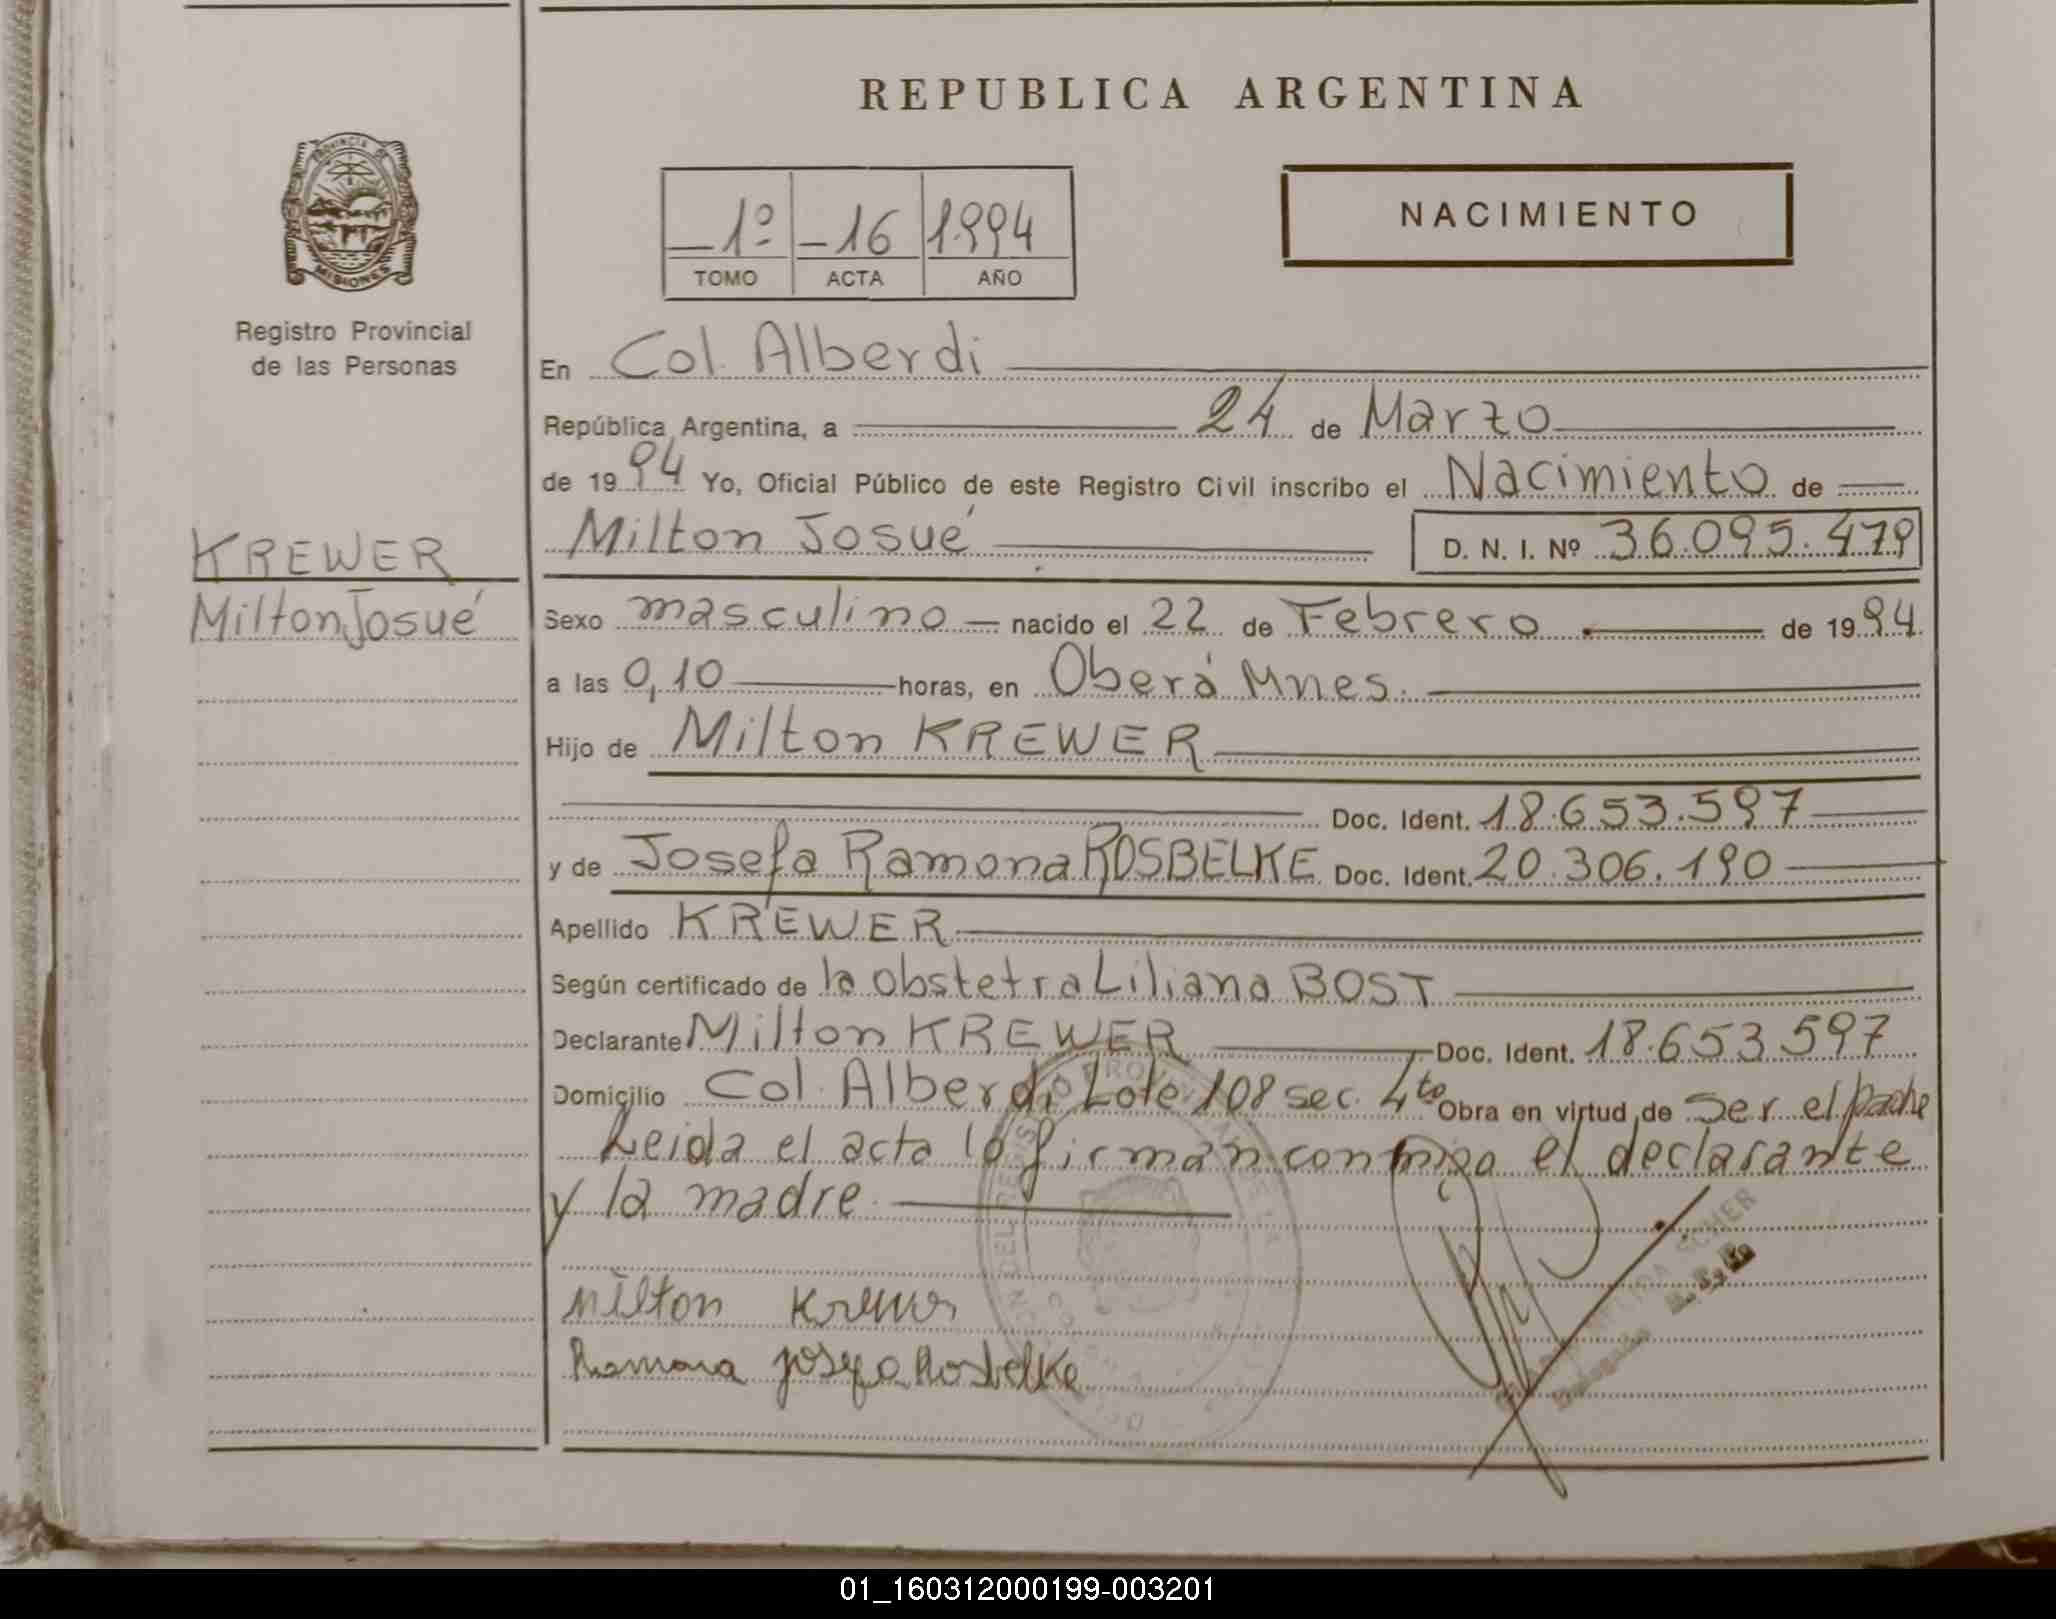 REPUBLICA ARGENTINA
PROVINCIA DE
MISIONES
Registro Provincial
de las Personas
1º 16 1994
TOMO ACTA AÑO
NACIMIENTO
En Col. Alberdi
República Argentina, a 24 de Marzo
de 1994 Yo, Oficial Público de este Registro Civil inscribo el Nacimiento de
Milton Josué D. N. I. Nº 36.095.479
KREWER
Milton Josué
Sexo masculino nacido el 22 de Febrero de 1994
a las 0,10 horas, en Oberá Mnes.
Hijo de Milton KREWER
Doc. Ident. 18.653.597
y de Josefa Ramona ROSBELKE Doc. Ident. 20.306.190
Apellido KREWER
Según certificado de la obstetra Liliana BOST
Declarante Milton KREWER Doc. Ident. 18.653.597
Domicilio Col. Alberdi Lote 108 sec. 4to Obra en virtud de ser el padre
Leida el acta lo firman conmigo el declarante
y la madre
Milton Krewer
Ramona Josefa Rosbelke
01_160312000199-003201